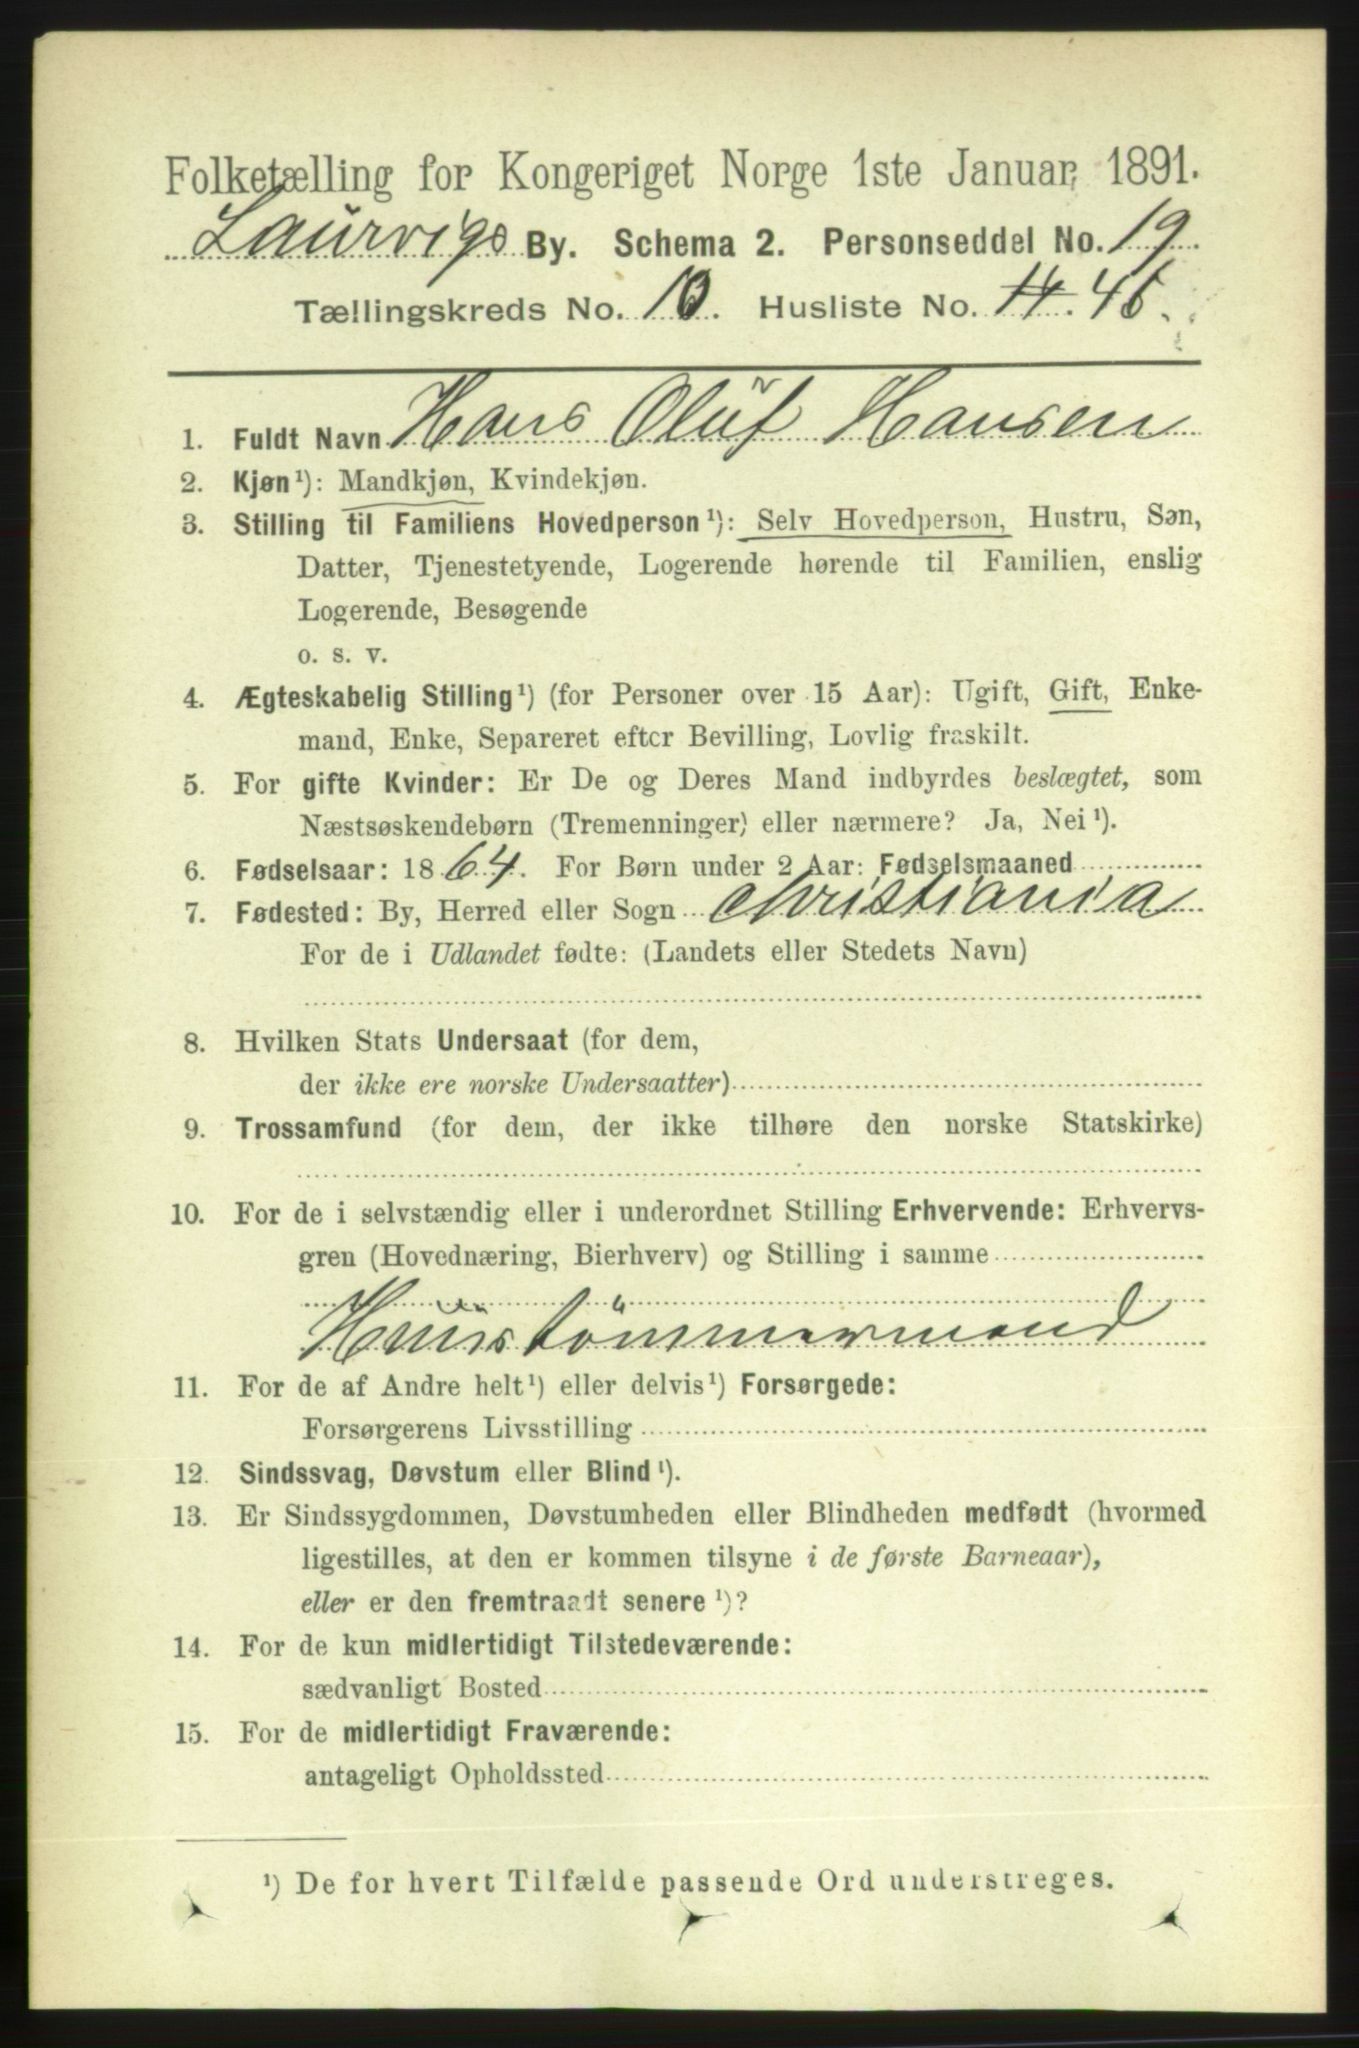 Folketælling for Kongeriget Norge 1ste Januar 1891.
Laurvigs By. Schema 2. Personseddel No. 19
Tællingskreds No. 10. Husliste No. 14. 46.
1. Fuldt Navn Hans Oluf Hansen
2. Kjøn¹): Mandkjøn, Kvindekjøn.
3. Stilling til Familiens Hovedperson¹): Selv Hovedperson, Hustru, Søn,
Datter, Tjenestetyende, Logerende hørende til Familien, enslig
Logerende, Besøgende
o. s. v.
4. Ægteskabelig Stilling¹) (for Personer over 15 Aar): Ugift, Gift, Enke-
mand, Enke, Separeret efter Bevilling, Lovlig fraskilt.
5. For gifte Kvinder: Er De og Deres Mand indbyrdes beslægtet, som
Næstsøskendebørn (Tremenninger) eller nærmere? Ja, Nei¹).
6. Fødselsaar: 1864. For Børn under 2 Aar: Fødselsmaaned
7. Fødested: By, Herred eller Sogn christiania
For de i Udlandet fødte: (Landets eller Stedets Navn)
8. Hvilken Stats Undersaat (for dem,
der ikke ere norske Undersaatter)
9. Trossamfund (for dem, der ikke tilhøre den norske Statskirke)
10. For de i selvstændig eller i underordnet Stilling Erhvervende: Erhvervs-
gren (Hovednæring, Bierhverv) og Stilling i samme
Huustömmermand
11. For de af Andre helt¹) eller delvis¹) Forsørgede:
Forsørgerens Livsstilling
12. Sindssvag, Døvstum eller Blind¹).
13. Er Sindssygdommen, Døvstumheden eller Blindheden medfødt (hvormed
ligestilles, at den er kommen tilsyne i de første Barneaar),
eller er den fremtraadt senere¹)?
14. For de kun midlertidigt Tilstedeværende:
sædvanligt Bosted
15. For de midlertidigt Fraværende:
antageligt Opholdssted
¹) De for hvert Tilfælde passende Ord understreges.